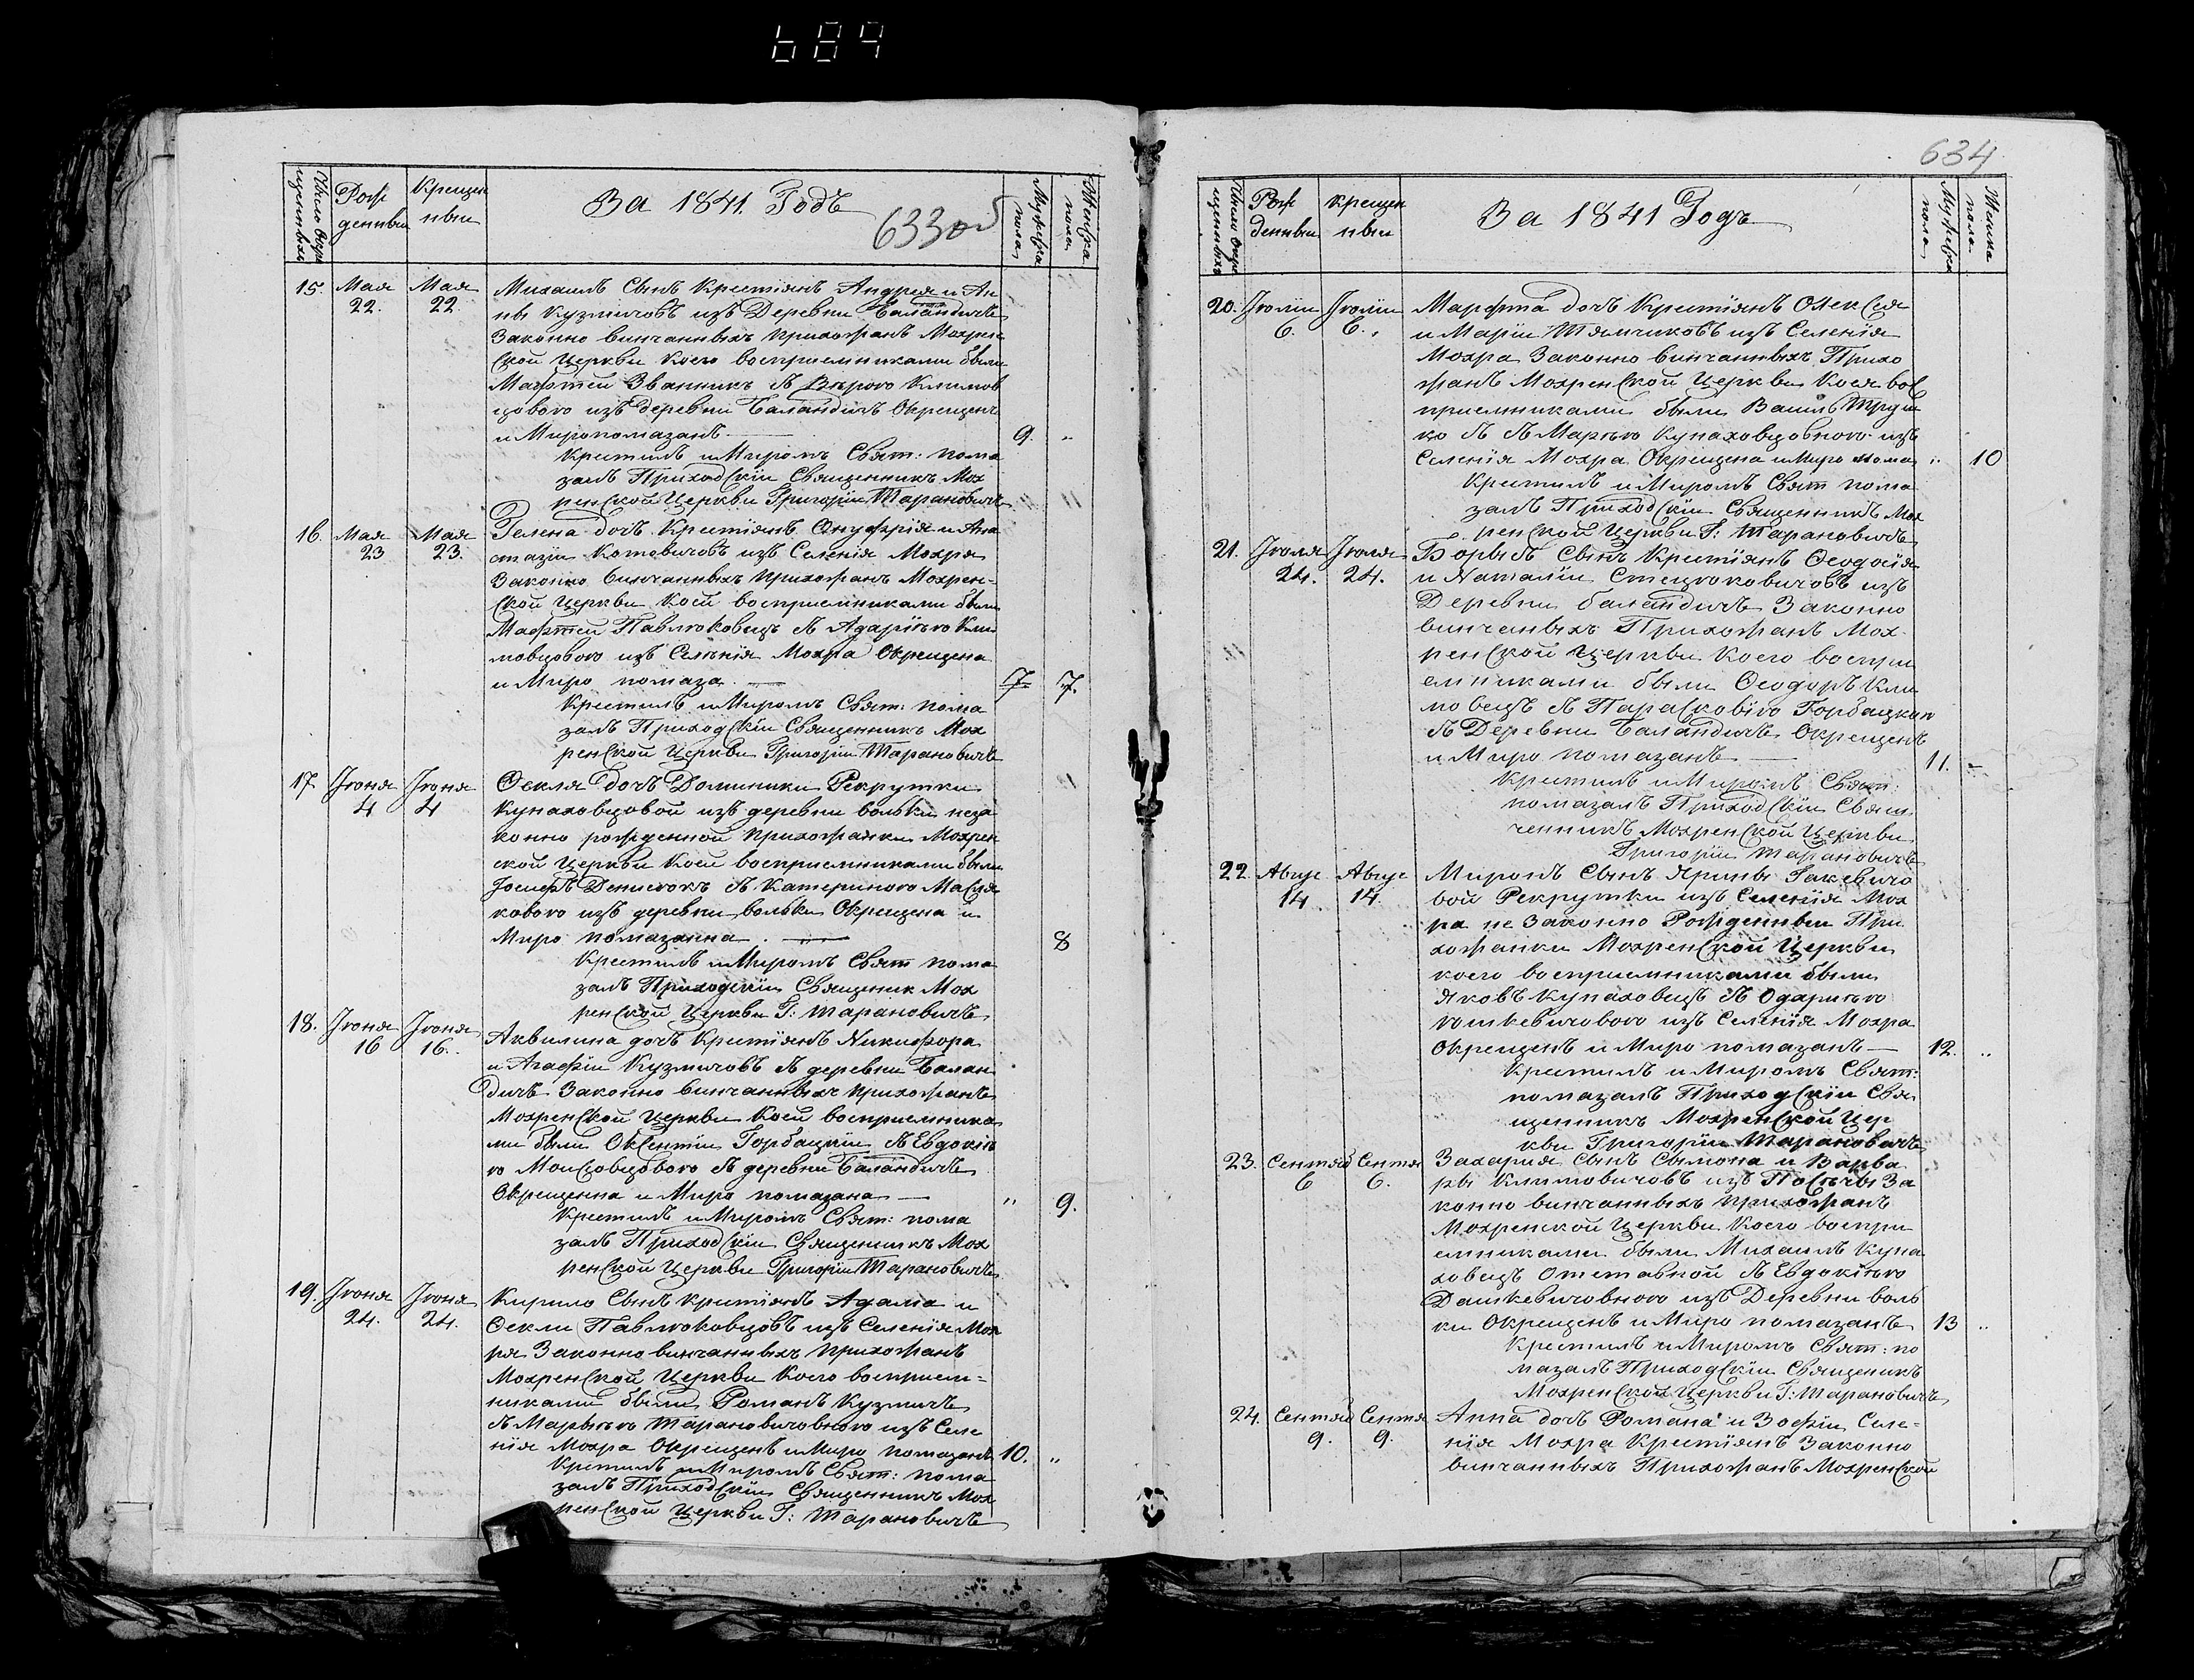 689
Число окре
щенныхъ
Рож
денныи
Крещен
ныи
За 1841. Годъ
633об
Мужеска
пола
Женска
пола
15. Мая 22. Мая 22. Михаилъ Сынъ Крестіянъ Андрея и Ан
ны Кузмичовъ изъ Деревни Баландичъ
Законно винчанныхъ прихожанъ Мохрен
ской Церкви Коего восприемниками были
Мафтей Званникъ съ Вѣрою Климов
цовою изъ деревни Баландичъ Окрещенъ
и Миропомазанъ 9. „
Крестилъ и Миромъ Свят: пома
залъ Приходскіи Священникъ Мох
ренской Церкви Григоріи Тарановичъ
16. Мая 23 Мая 23. Гелена дочъ Крестіянъ Онуфрія и Ана
стазіи Котовичовъ изъ Селенія Мохря
Законно винчанныхъ прихожанъ Мохрен-
ской Церкви Коей восприемниками были
Мафтей Павлюковецъ съ Адаріею Кли
мовцовою изъ Селѣнія Мохра Окрещена
и Миро помаза. 7 7.
Крестилъ и Миромъ Свят: пома
залъ Приходскіи Священникъ Мох
ренской Церкви Григоріи Тарановичъ
17 Іюня 4 Іюня 4 Ѳекля дочъ Доминики Рекрутки
Кунаховцовой изъ деревни вольки неза
конно рожденной прихожанки Мохрен
ской Церкви Коей восприемниками были
Іосифъ Денисюкъ съ Катериною Масля
ковою изъ деревни вольки Окрещена и
Миро помазанна 8
Крестилъ и Миромъ Свят пома
залъ Приходскіи Священик Мох
ренской Церкви Г: Тарановичъ
18. Іюня 16 Іюня 16. Аквилина дочъ Крестіянъ Никифора
и Агафіи Кузмичовъ съ деревни Балан
дичъ Законно винчанныхъ прихожанъ
Мохренской Церкви Коей восприемника
ми были Оксентіи Горбацкіи съ Евдокіе
ю Моисовцовою съ деревни Баландичъ
Окрещенна и Миро помазана „ 9.
Крестилъ и Миромъ Свят: пома
залъ Приходскіи Священникъ Мох
ренской Церкви Григоріи Тарановичъ
19. Іюня 24. Іюня 24. Кирило Сынъ крестіянъ Адама и
Ѳекли Павлюковцовъ изъ Селенія Мох
ря Законно винчанныхъ прихожанъ
Мохренской Церкви Коего восприем-
никами были Романъ Кузмичъ
съ Марѣею Тарановичовною изъ Селе
нія Мохра Окрещенъ и Миро помазанъ 10. „
Крестилъ и Миромъ Свят: пома
залъ Приходскіи Священникъ Мох
ренской Церкви Г: Тарановичъ
634
Число окре
щенныхъ
Рож
денныи
Крещен
ныи
За 1841 Годъ
Мужеска
пола
Женска
пола
20. Іюліи 6. Іюліи 6. Марфта дочъ Крестіянъ Олексея
и Маріи Тямчиковъ изъ Селенія
Мохра Законно винчанныхъ Прихо
жанъ Мохренской Церкви Коея вос
приемниками были Василь Труш
ко съ съ Марѣею Кунаховцовною изъ
Селенія Мохра Окрещена и Миро пома „ 10
Крестилъ и Миромъ Свят пома
залъ Приходскіи Священникъ Мох
ренской Церкви Г: Тарановичъ
21. Іюля 24. Іюля 24. Борысъ Сынъ Крестіянъ Ѳеодосія
и Наталіи Стецюковичовъ изъ
Деревни баландичъ Законно
винчаныхъ Прихожанъ Мох-
ренской Церкви Коего воспри
емниками были Ѳеодоръ Кли
мовецъ съ Парасковіею Горбацкою
съ Деревни Баландичъ Окрещенъ
и Миро помазанъ 11. „
Крестилъ и Миромъ Свят:
помазалъ Приходскіи Свящ
ченникъ Мохренской Церкви
Григоріи Тарановичъ
22. Авгус 14 Авгус 14. Миронъ Сынъ Ярины Гакевичо
вой Рекрутки изъ Селенія Мох
ра не Законно Рожденныи При
хожанки Мохренской Церкви
коего восприемниками были
Яковъ Кунаховецъ съ Одариею
гошкевичовою изъ Селенія Мохра
Окрещенъ и Миро помазанъ 12. „
Крестилъ и Миромъ Свят:
помазалъ Приходскіи Свя
щенникъ Мохренской Цер
кви Григоріи Тарановичъ
23. Сентяб 6 Сентя 6. Захария Сынъ Сымона и Варва
ры Климовичовъ изъ Посѣчы За
конно винчанныхъ прихожанъ
Мохренской Церкви Коего воспри
емниками были Михаилъ Куна
ховецъ Отставной съ Евдокіею
Дашкевичовною изъ Деревни воль
ки Окрещенъ и Миро помазанъ 13 „
Крестилъ и Миромъ Свят: по
мазалъ Приходскіи Священикъ
Мохренской Церкви Г: Тарановичъ
24. Сентяб 9. Сентя 9. Анна дочъ Романа и Зофіи Селе-
нія Мохра Крестіянъ Законно
винчанныхъ Прихожанъ Мохренской